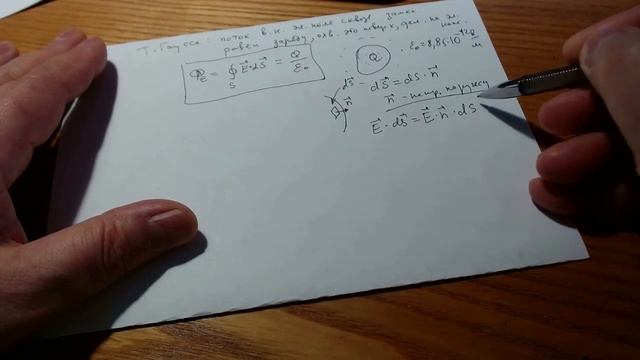 Т. Гаусса: поток в.н. эл. поля сквозь замк
равен заряду, охв. эту поверх, дел. на эл.
пост.
Φ_E = ∮_S E⃗·dS⃗ = Q/ε₀
Q
ε₀=8,85·10⁻¹² Ф/м
dS⃗ - dS⃗ = dS · n⃗
n⃗
n⃗ - непр. наружу
E⃗ · dS⃗ = E⃗ · n⃗ · dS